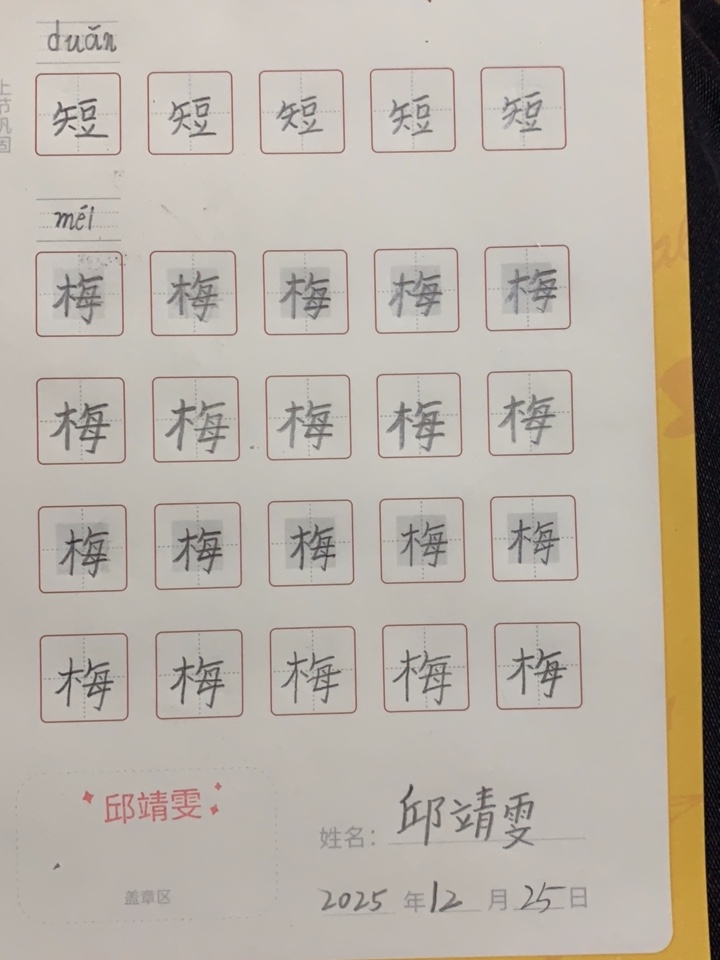 duǎn
上节巩固
短 短 短 短 短
méi
梅 梅 梅 梅 梅
梅 梅 梅 梅 梅
梅 梅 梅 梅 梅
梅 梅 梅 梅 梅
邱靖雯
盖章区
姓名: 邱靖雯
2025 年 12 月 25 日